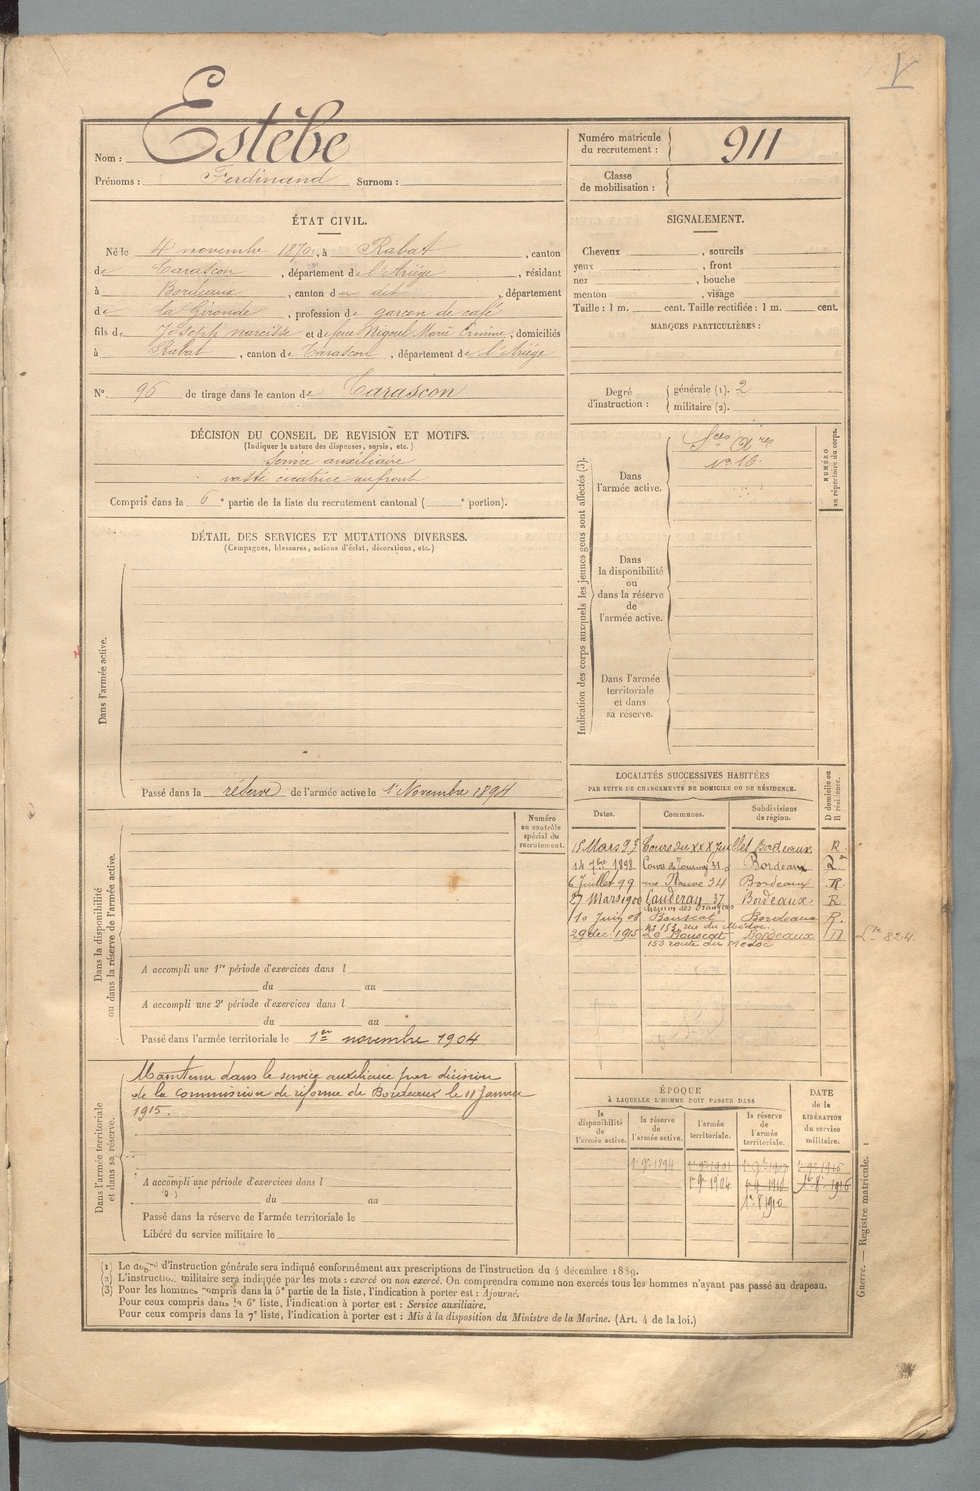 Nom : Estèbe
Prénoms : Ferdinand Surnom :
Numéro matricule du recrutement : 911
Classe de mobilisation :
ÉTAT CIVIL.
Né le 4 novembre 1870, à Rabat, canton
de Tarascon, département de l'Ariège, résidant
à Bordeaux, canton du dit, département
de la Gironde, profession de garçon de café
fils de Joseph Narcisse et de feue Marie, domiciliés
à Rabat, canton de Tarascon, département de l'Ariège
N° 96 de tirage dans le canton de Tarascon
SIGNALEMENT.
Cheveux , sourcils
yeux , front
nez , bouche
menton , visage
Taille : 1 m. cent. Taille rectifiée : 1 m. cent.
MARQUES PARTICULIÈRES :
Degré d'instruction : générale (1). 2
militaire (2).
DÉCISION DU CONSEIL DE REVISION ET MOTIFS.
(Indiquer la nature des dispenses, sursis, etc.)
Service auxiliaire
vaste cicatrice au front
Compris dans la 6e partie de la liste du recrutement cantonal ( e portion).
DÉTAIL DES SERVICES ET MUTATIONS DIVERSES.
(Campagnes, blessures, actions d'éclat, décorations, etc.)
Dans l'armée active.
Passé dans la réserve de l'armée active le 1er Novembre 1894
Indication des corps auxquels les jeunes gens sont affectés (3).
NUMÉRO au répertoire du corps.
Dans l'armée active.
Sces Axres
N° 16.
Dans la disponibilité ou dans la réserve de l'armée active.
Dans l'armée territoriale et dans sa réserve.
LOCALITÉS SUCCESSIVES HABITÉES
PAR SUITE DE CHANGEMENTS DE DOMICILE OU DE RÉSIDENCE.
Dates. Communes. Subdivisions de région. D domicile ou R résidence.
18 Mars 93 Cours du XXX Juillet Bordeaux R
14 7bre 1898 Cours de Tourny 31 Bordeaux
6 Juillet 99 rue Neuve 34 Bordeaux R
27 Mars 1900 Caudéran 37 Bordeaux R
chemin des Orangers
10 Juin 08 Bouscat Bordeaux R.
153, rue du Médoc.
29 dec 1915 Le Bouscat Bordeaux D
153 route du Médoc
824.
Dans la disponibilité ou dans la réserve de l'armée active.
Numéro au contrôle spécial du recrutement.
A accompli une 1re période d'exercices dans l
du au
A accompli une 2e période d'exercices dans l
du au
Passé dans l'armée territoriale le 1er novembre 1904
Dans l'armée territoriale et dans sa réserve.
Maintenu dans le service auxiliaire par décision
de la commission de réforme de Bordeaux le 11 Janvier
1915.
A accompli une période d'exercices dans l
du au
Passé dans la réserve de l'armée territoriale le
Libéré du service militaire le
ÉPOQUE
À LAQUELLE L'HOMME DOIT PASSER DANS
la disponibilité de l'armée active. la réserve de l'armée active. l'armée territoriale. la réserve de l'armée territoriale.
DATE de la LIBÉRATION du service militaire.
1er 9bre 1894
1er 9bre 1904
Guerre. — Registre matricule. 1
(1) Le degré d'instruction générale sera indiqué conformément aux prescriptions de l'instruction du 4 décembre 1889.
(2) L'instruction militaire sera indiquée par les mots : exercé ou non exercé. On comprendra comme non exercés tous les hommes n'ayant pas passé au drapeau.
(3) Pour les hommes compris dans la 5e partie de la liste, l'indication à porter est : Ajourné.
Pour ceux compris dans la 6e liste, l'indication à porter est : Service auxiliaire.
Pour ceux compris dans la 7e liste, l'indication à porter est : Mis à la disposition du Ministre de la Marine. (Art. 4 de la loi.)